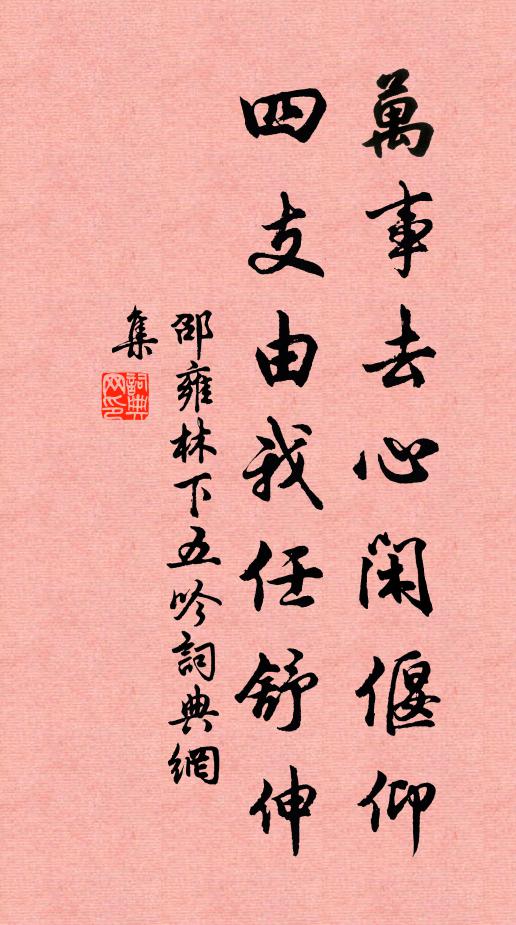 萬事去心閑偃仰
四支由我任舒伸
邵雍林下五吟詞典網
集
詞典
网印